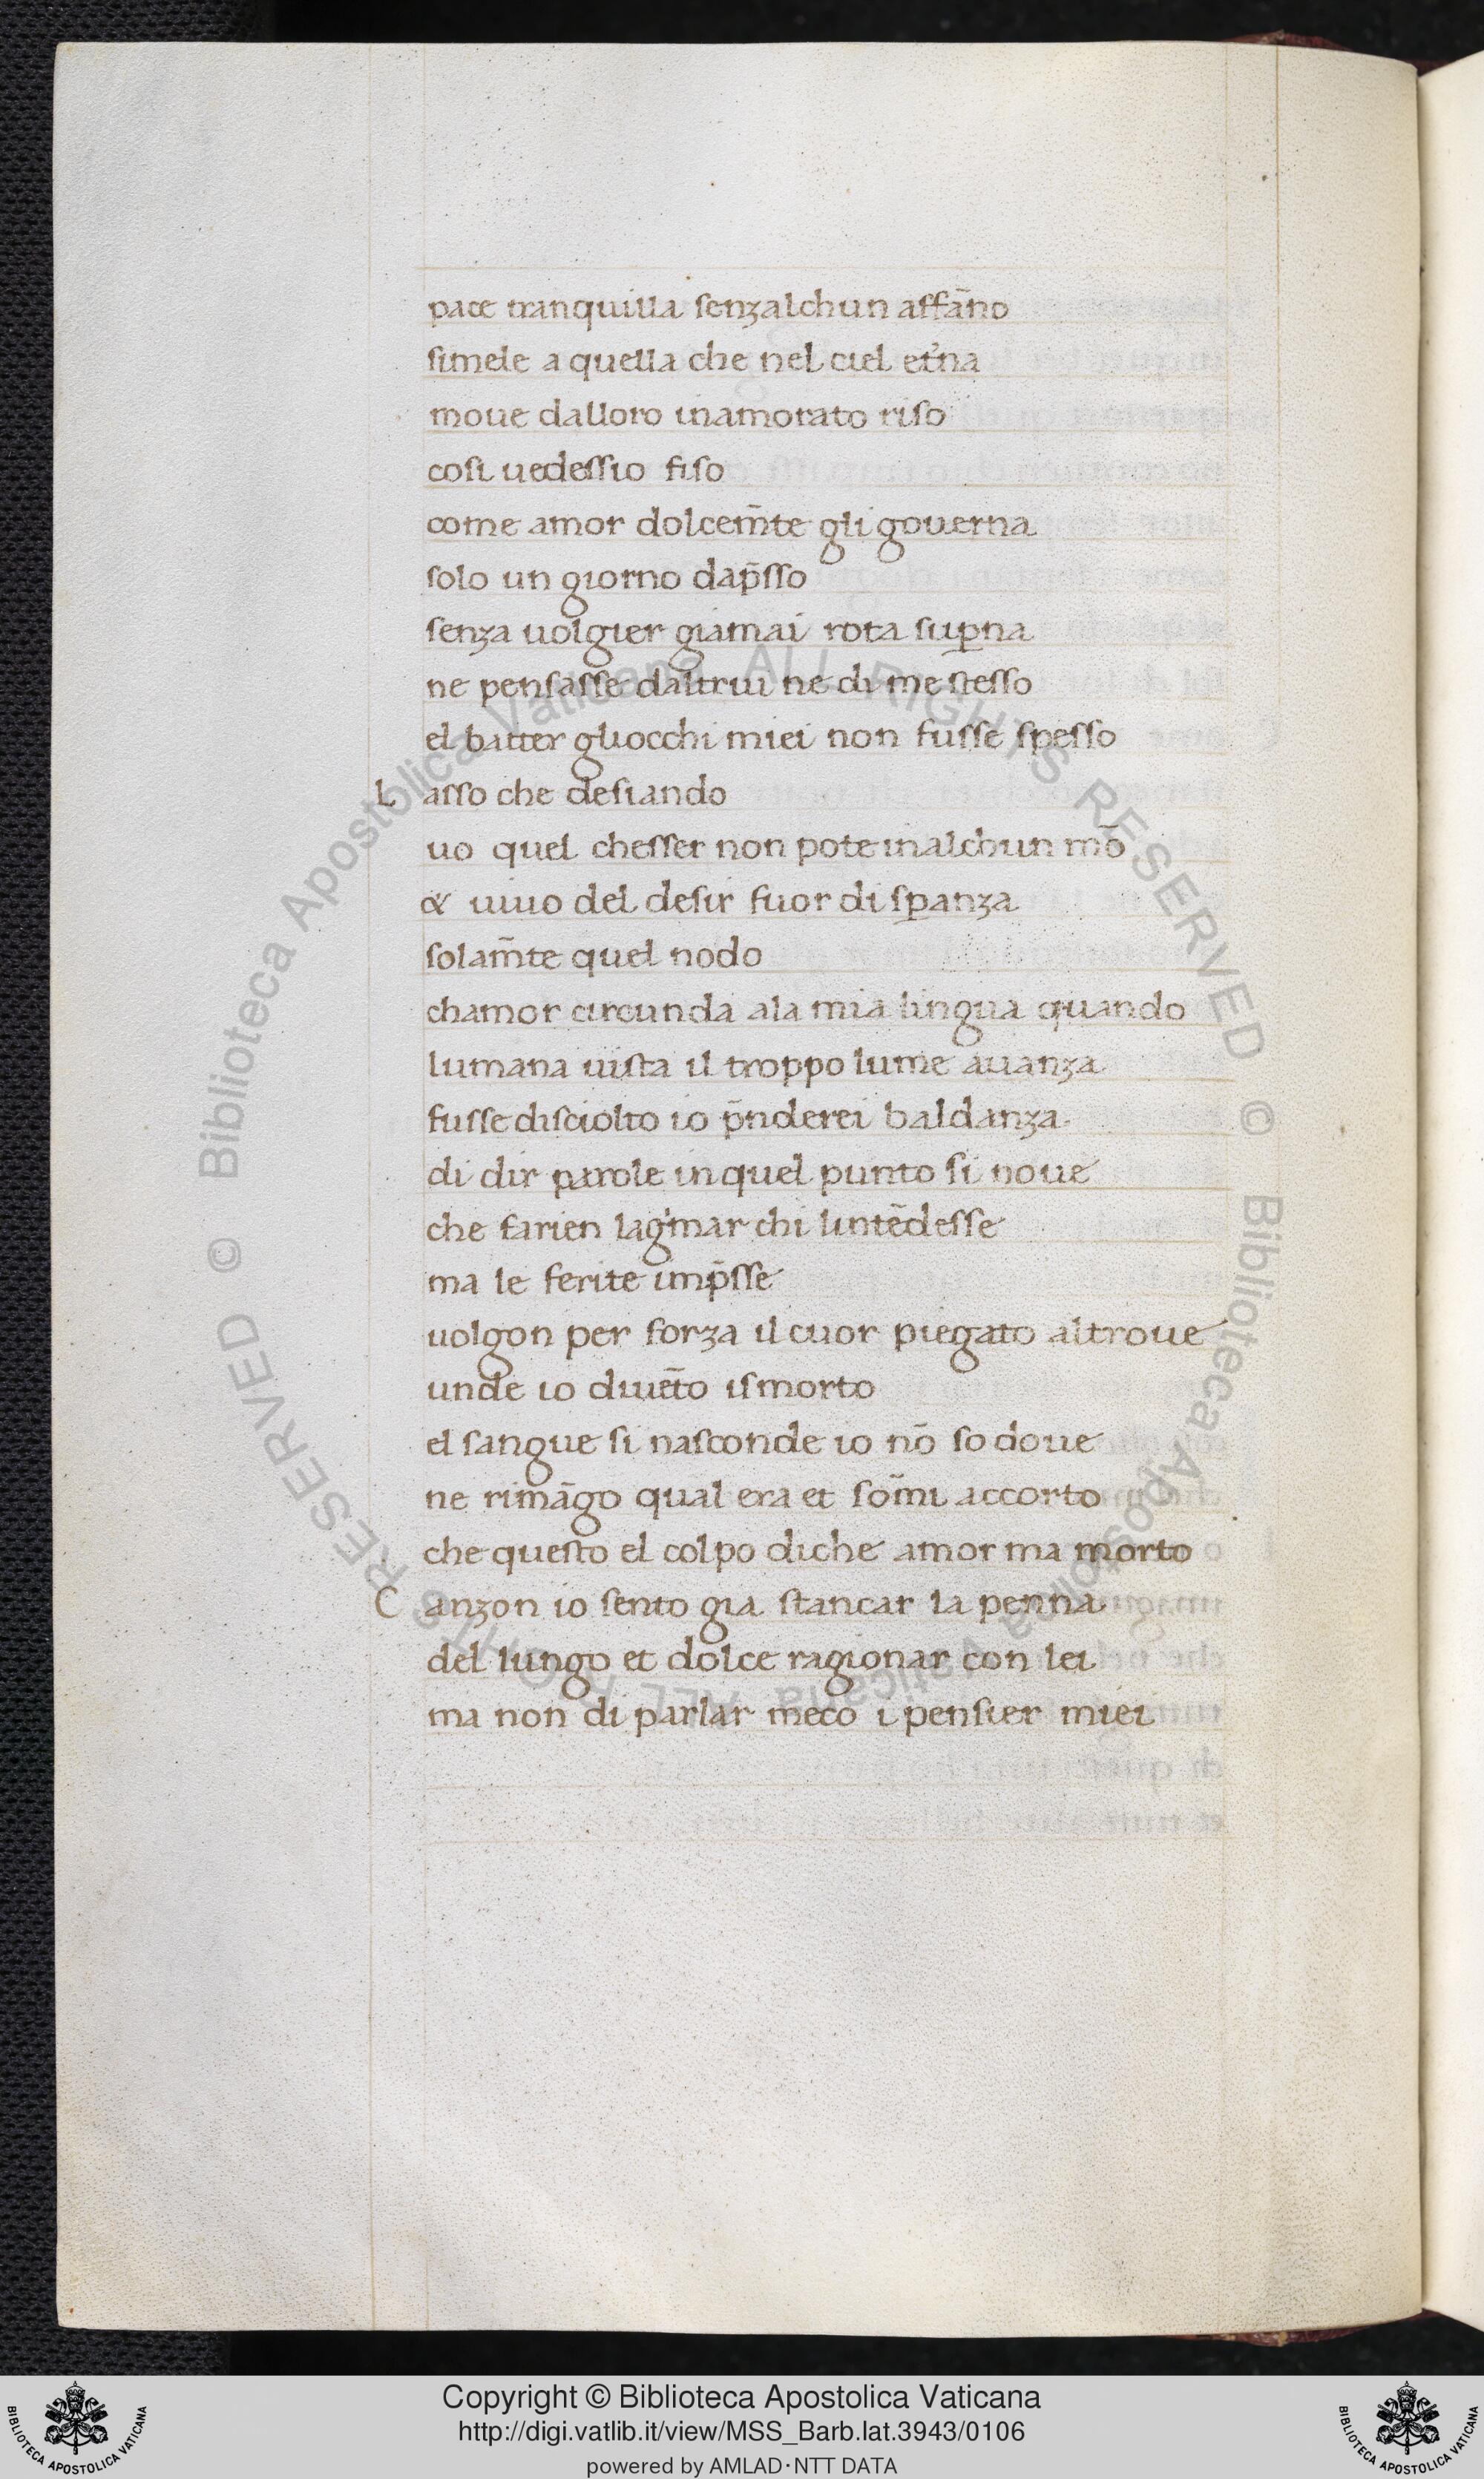 pace tranquilla senzalchun affãno
simele a quella che nel ciel et'na
moue dalloro inamorato riso
cosi uedessio fiso
come amor dolcem̃te gli gouerna
solo un giorno dap̃sso
senza uolgier giamai rota suꝑna
ne pensasse daltrui ne di me stesso
el batter gliocchi miei non fusse spesso
L asso che desiando
uo quel chesser non pote inalchun mõ
& uiuo del desir fuor di sꝑanza
solam̃te quel nodo
chamor circunda ala mia lingua quando
lumana uista il troppo lume auanza
fusse disciolto io p̃nderei baldanza
di dir parole in quel punto si noue
che farien lag'mar chi lintẽdesse
ma le ferite imp̃sse
uolgon per forza il cuor piegato altroue
unde io diuẽto ismorto
el sangue si nasconde io nõ so doue
ne rimãgo qual era et som̃i accorto
che questo el colpo diche amor ma morto
C anzon io sento gia stancar la penna
del lungo et dolce ragionar con lei
ma non di parlar meco i pensier miei
Copyright © Biblioteca Apostolica Vaticana
http://digi.vatlib.it/view/MSS_Barb.lat.3943/0106
powered by AMLAD·NTT DATA